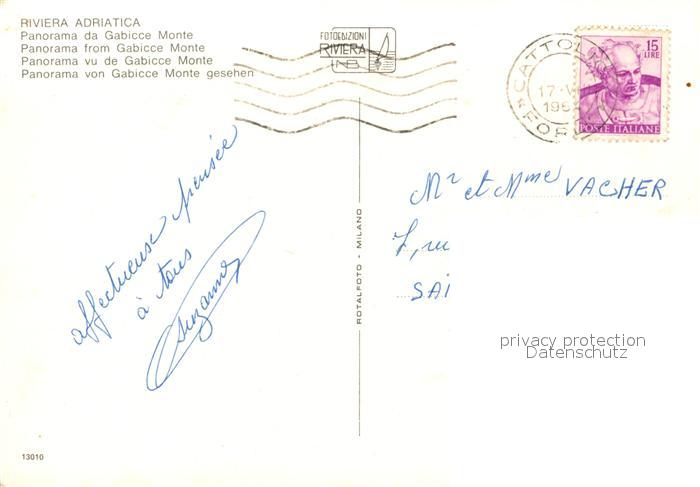 RIVIERA ADRIATICA
Panorama da Gabicce Monte
Panorama from Gabicce Monte
Panorama vu de Gabicce Monte
Panorama von Gabicce Monte gesehen
FOTOEDIZIONI
RIVIERA
CATTOLICA
17
FORLI
15
LIRE
POSTE ITALIANE
affectueuse pensée
à tous
Suzanne
ROTALFOTO - MILANO
Mr et Mme VACHER
7, ru
SAI
privacy protection
Datenschutz
13010